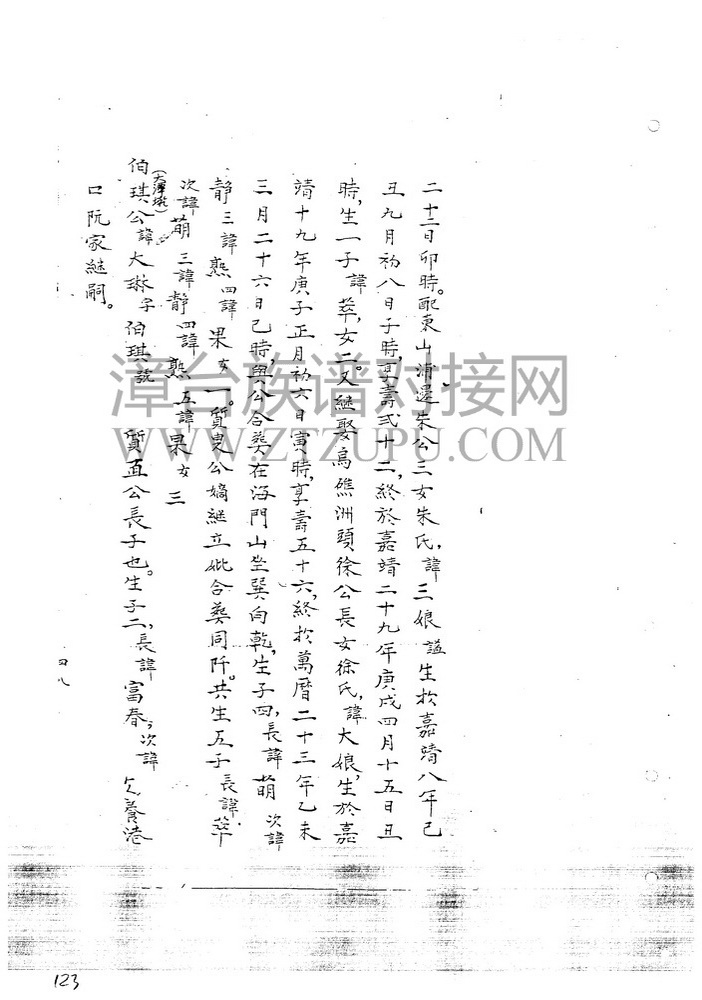 二十二日卯時。配東山浦邊朱公三女朱氏，諱三娘謚生於嘉靖八年己
丑九月初八日子時，享壽弍十二，終於嘉靖二十九年庚戌四月十五日丑
時，生一子諱萃，女二。又繼娶烏礁洲頭徐公長女徐氏，諱大娘，生於嘉
靖十九年庚子正月初六日寅時，享壽五十六，終於萬曆二十三年乙未
三月二十六日己時，與公合葬在海門山坐巽向乾，生子四，長諱萌次諱
靜三諱熊四諱果女一。質叟公嫡繼立妣合葬同阡。共生五子長諱萃
次諱萌三諱靜四諱熊五諱果女三
伯琪公諱大琳字伯琪號 質直公長子也。生子二，長諱富春；次諱 欠養港
(大潭墘)
口阮家継嗣。
四八
123
漳台族谱对接网
WWW.ZTZUPU.COM